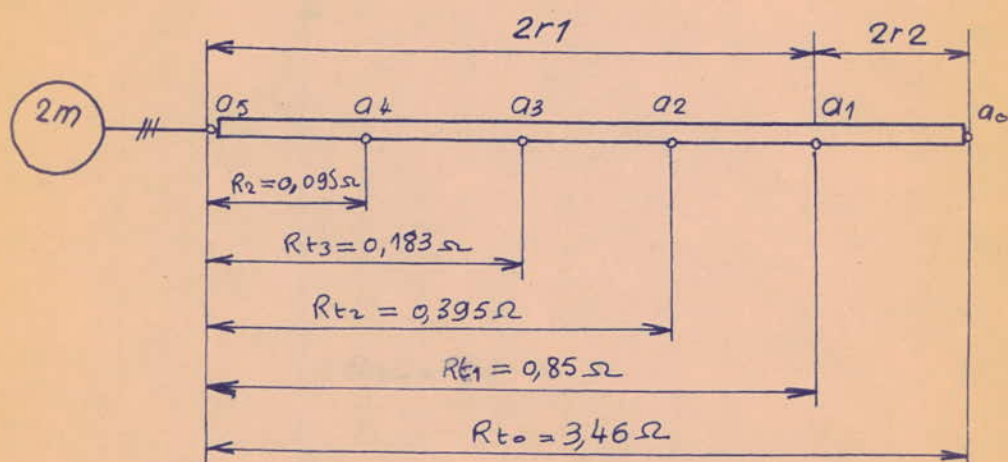 2r1 2r2
2m a5 a4 a3 a2 a1 a0
R2=0,095Ω
Rt3=0,183Ω
Rt2 = 0,395Ω
Rt1 = 0,85Ω
Rt0 = 3,46Ω